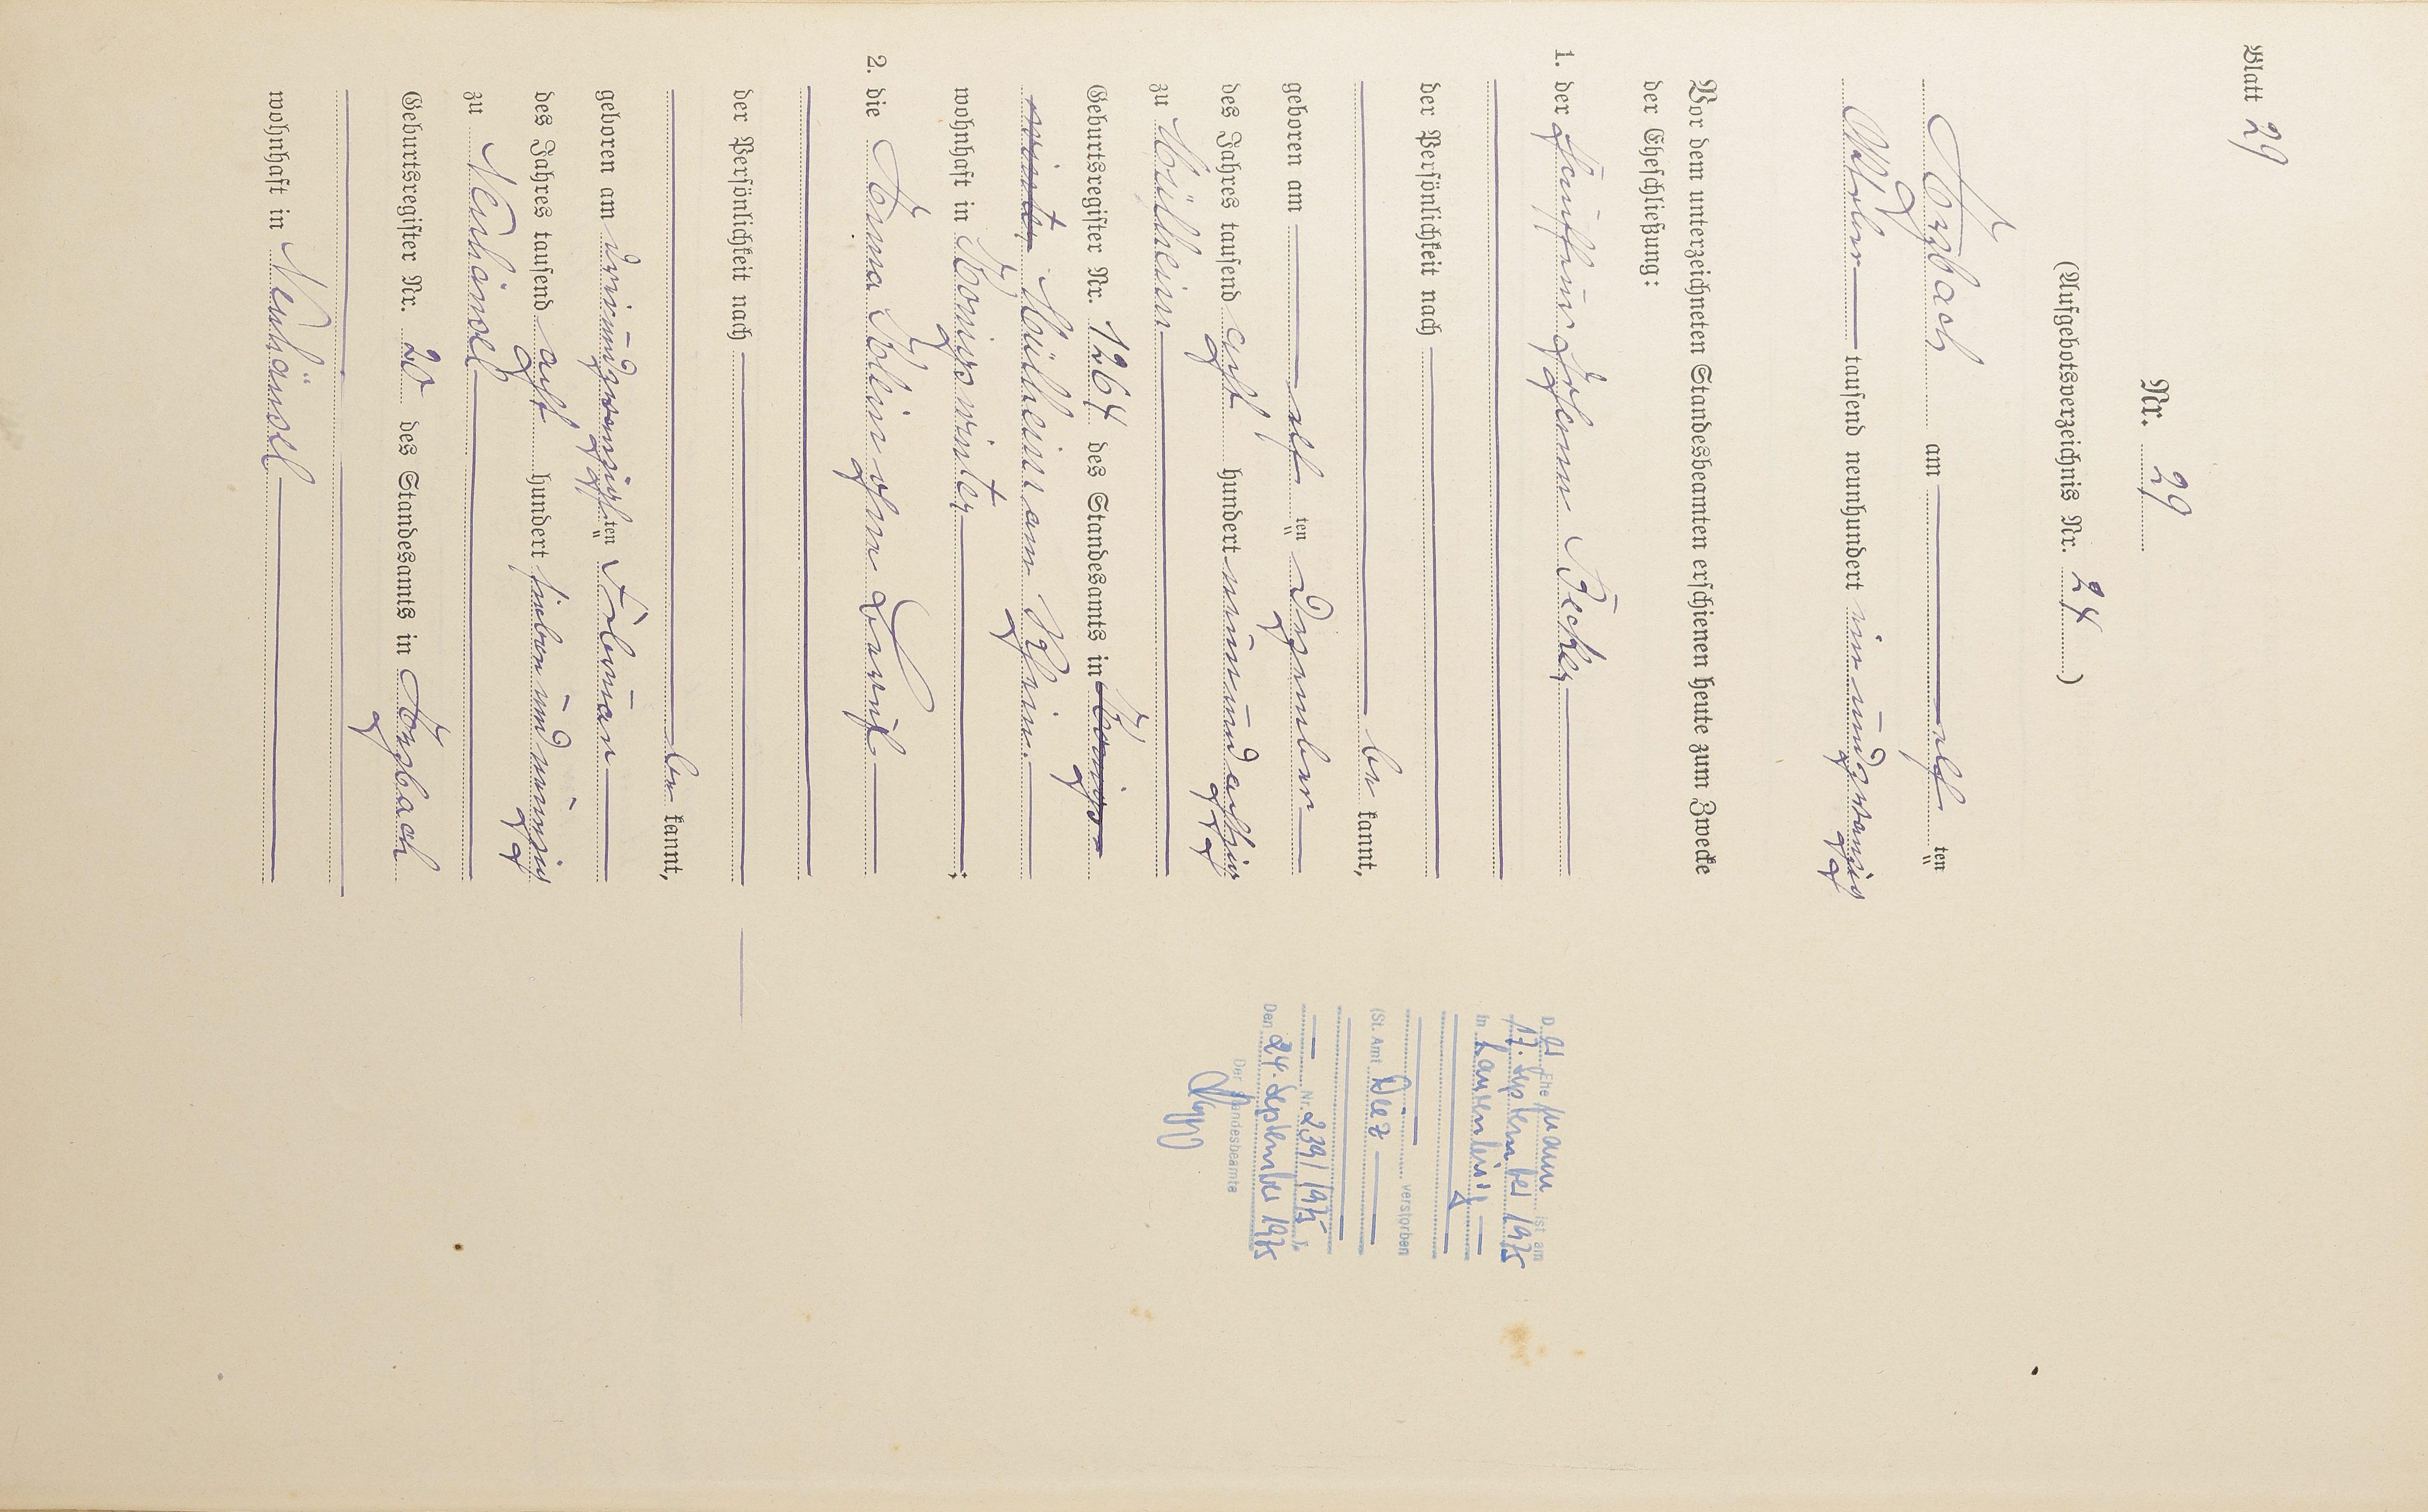 Blatt 29
Nr. 29
(Aufgebotsverzeichnis Nr. 24)
Arzbach am elf ten
Oktober tausend neunhundert ein und zwanzig
Vor dem unterzeichneten Standesbeamten erschienen heute zum Zwecke
der Eheschließung:
1. der Johann Becker
der Persönlichkeit nach
be kannt,
geboren am elf ten Dezember
des Jahres tausend acht hundert neun und achtzig
zu Mülheim
Geburtsregister Nr. 1264 des Standesamts in Königs-
winter Mülheim am Rhein.
wohnhaft in Königswinter;
2. die Anna Klein ohne Beruf
der Persönlichkeit nach
be kannt,
geboren am dreiundzwanzigsten ten Februar
des Jahres tausend acht hundert sieben und neunzig
zu Neuhäusel
Geburtsregister Nr. 20 des Standesamts in Arzbach
wohnhaft in Neuhäusel
D er Ehe mann ist am
17. September 1975
in Laurenburg
verstorben
(St. Amt Diez
Nr. 239/1975 ).
Den 24. September 1975
Der Standesbeamte